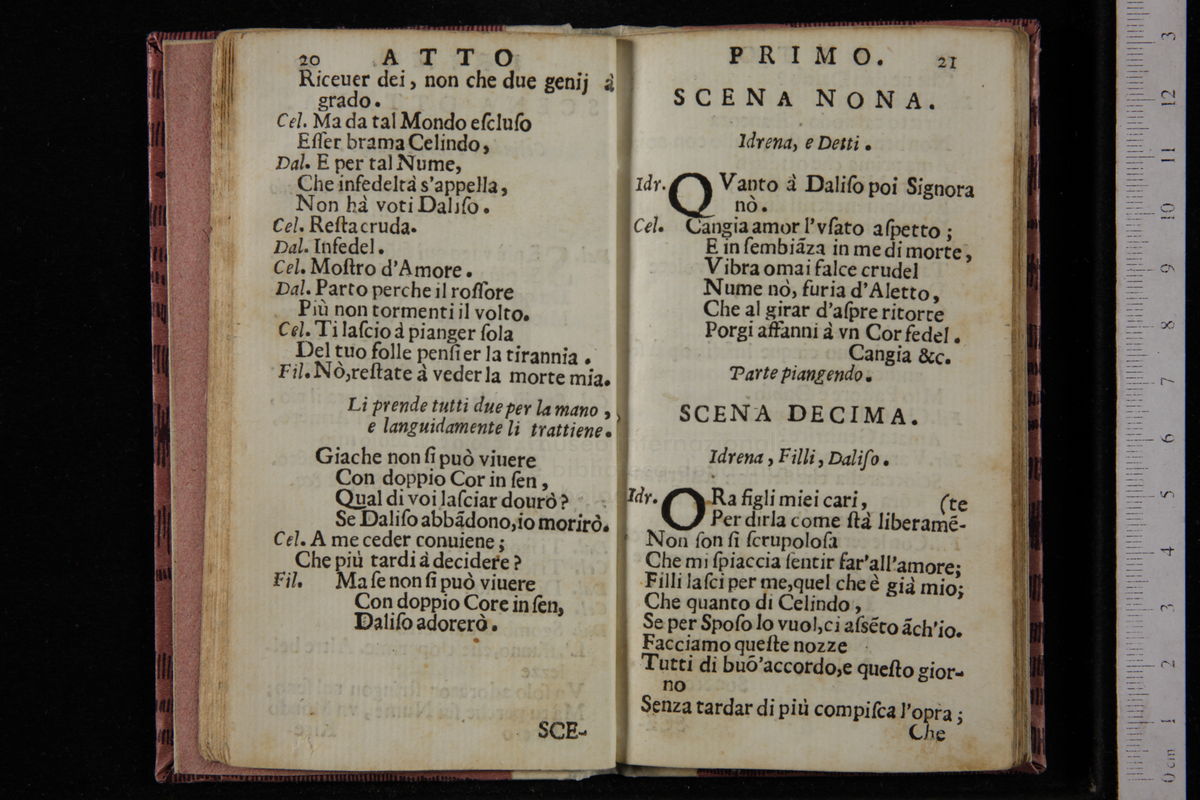 20 ATTO
Riceuer dei, non che due genij à
grado.
Cel. Ma da tal Mondo eſcluſo
Eſſer brama Celindo,
Dal. E per tal Nume,
Che infedeltà s'appella,
Non hà voti Daliſo.
Cel. Reſta cruda.
Dal. Infedel.
Cel. Moſtro d'Amore.
Dal. Parto perche il roſſore
Più non tormenti il volto.
Cel. Ti laſcio à pianger ſola
Del tuo folle penſier la tirannia.
Fil. Nò, reſtate à veder la morte mia.
Li prende tutti due per la mano,
e languidamente li trattiene.
Giache non ſi può viuere
Con doppio Cor in ſen,
Qual di voi laſciar dourò?
Se Daliſo abbãdono, io morirò.
Cel. A me ceder conuiene;
Che più tardi à decidere?
Fil. Ma ſe non ſi può viuere
Con doppio Core in ſen,
Daliſo adorerò.
SCE-
PRIMO. 21
SCENA NONA.
Idrena, e Detti.
Idr. QVanto à Daliſo poi Signora
nò.
Cel. Cangia amor l'vſato aſpetto;
E in ſembiãza in me di morte,
Vibra omai falce crudel
Nume nò, furia d'Aletto,
Che al girar d'aſpre ritorte
Porgi affanni à vn Cor fedel.
Cangia &c.
Parte piangendo.
SCENA DECIMA.
Idrena, Filli, Daliſo.
Idr. ORa figli miei cari, (te
Per dirla come ſtà liberamẽ-
Non ſon ſi ſcrupoloſa
Che mi ſpiaccia ſentir far'all'amore;
Filli laſci per me, quel che è già mio;
Che quanto di Celindo,
Se per Spoſo lo vuol, ci aſsẽto ãch'io.
Facciamo queſte nozze
Tutti di buõ'accordo, e queſto gior-
no
Senza tardar di più compiſca l'opra;
Che
3
12
11
10
9
8
7
6
5
4
3
2
1
0 cm